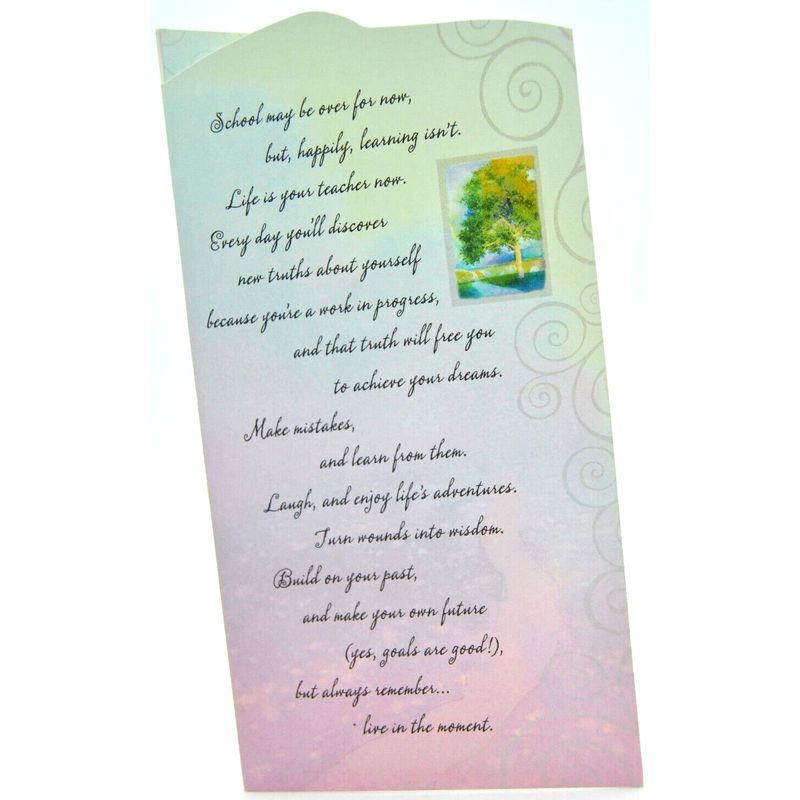 School may be over for now,
but, happily, learning isn't.
Life is your teacher now.
Every day you'll discover
new truths about yourself
because you're a work in progress,
and that truth will free you
to achieve your dreams.
Make mistakes,
and learn from them.
Laugh, and enjoy life's adventures.
Turn wounds into wisdom.
Build on your past,
and make your own future
(yes, goals are good!),
but always remember...
live in the moment.